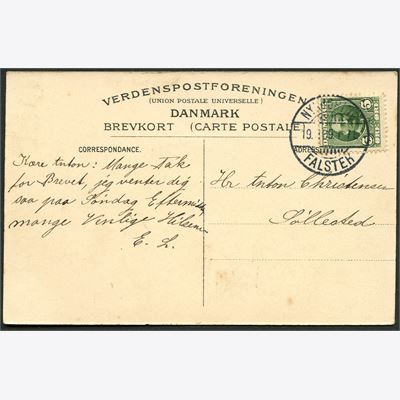 VERDENSPOSTFORENINGEN
(UNION POSTALE UNIVERSELLE)
DANMARK
BREVKORT (CARTE POSTALE)
CORRESPONDANCE.
Kære Anton: Mange Tak
for Brevet, jeg venter dig
saa paa Søndag Eftermiddag
mange Venlige Hilsener
E. L.
FALSTER
Hr Anton Christensen
Søllested